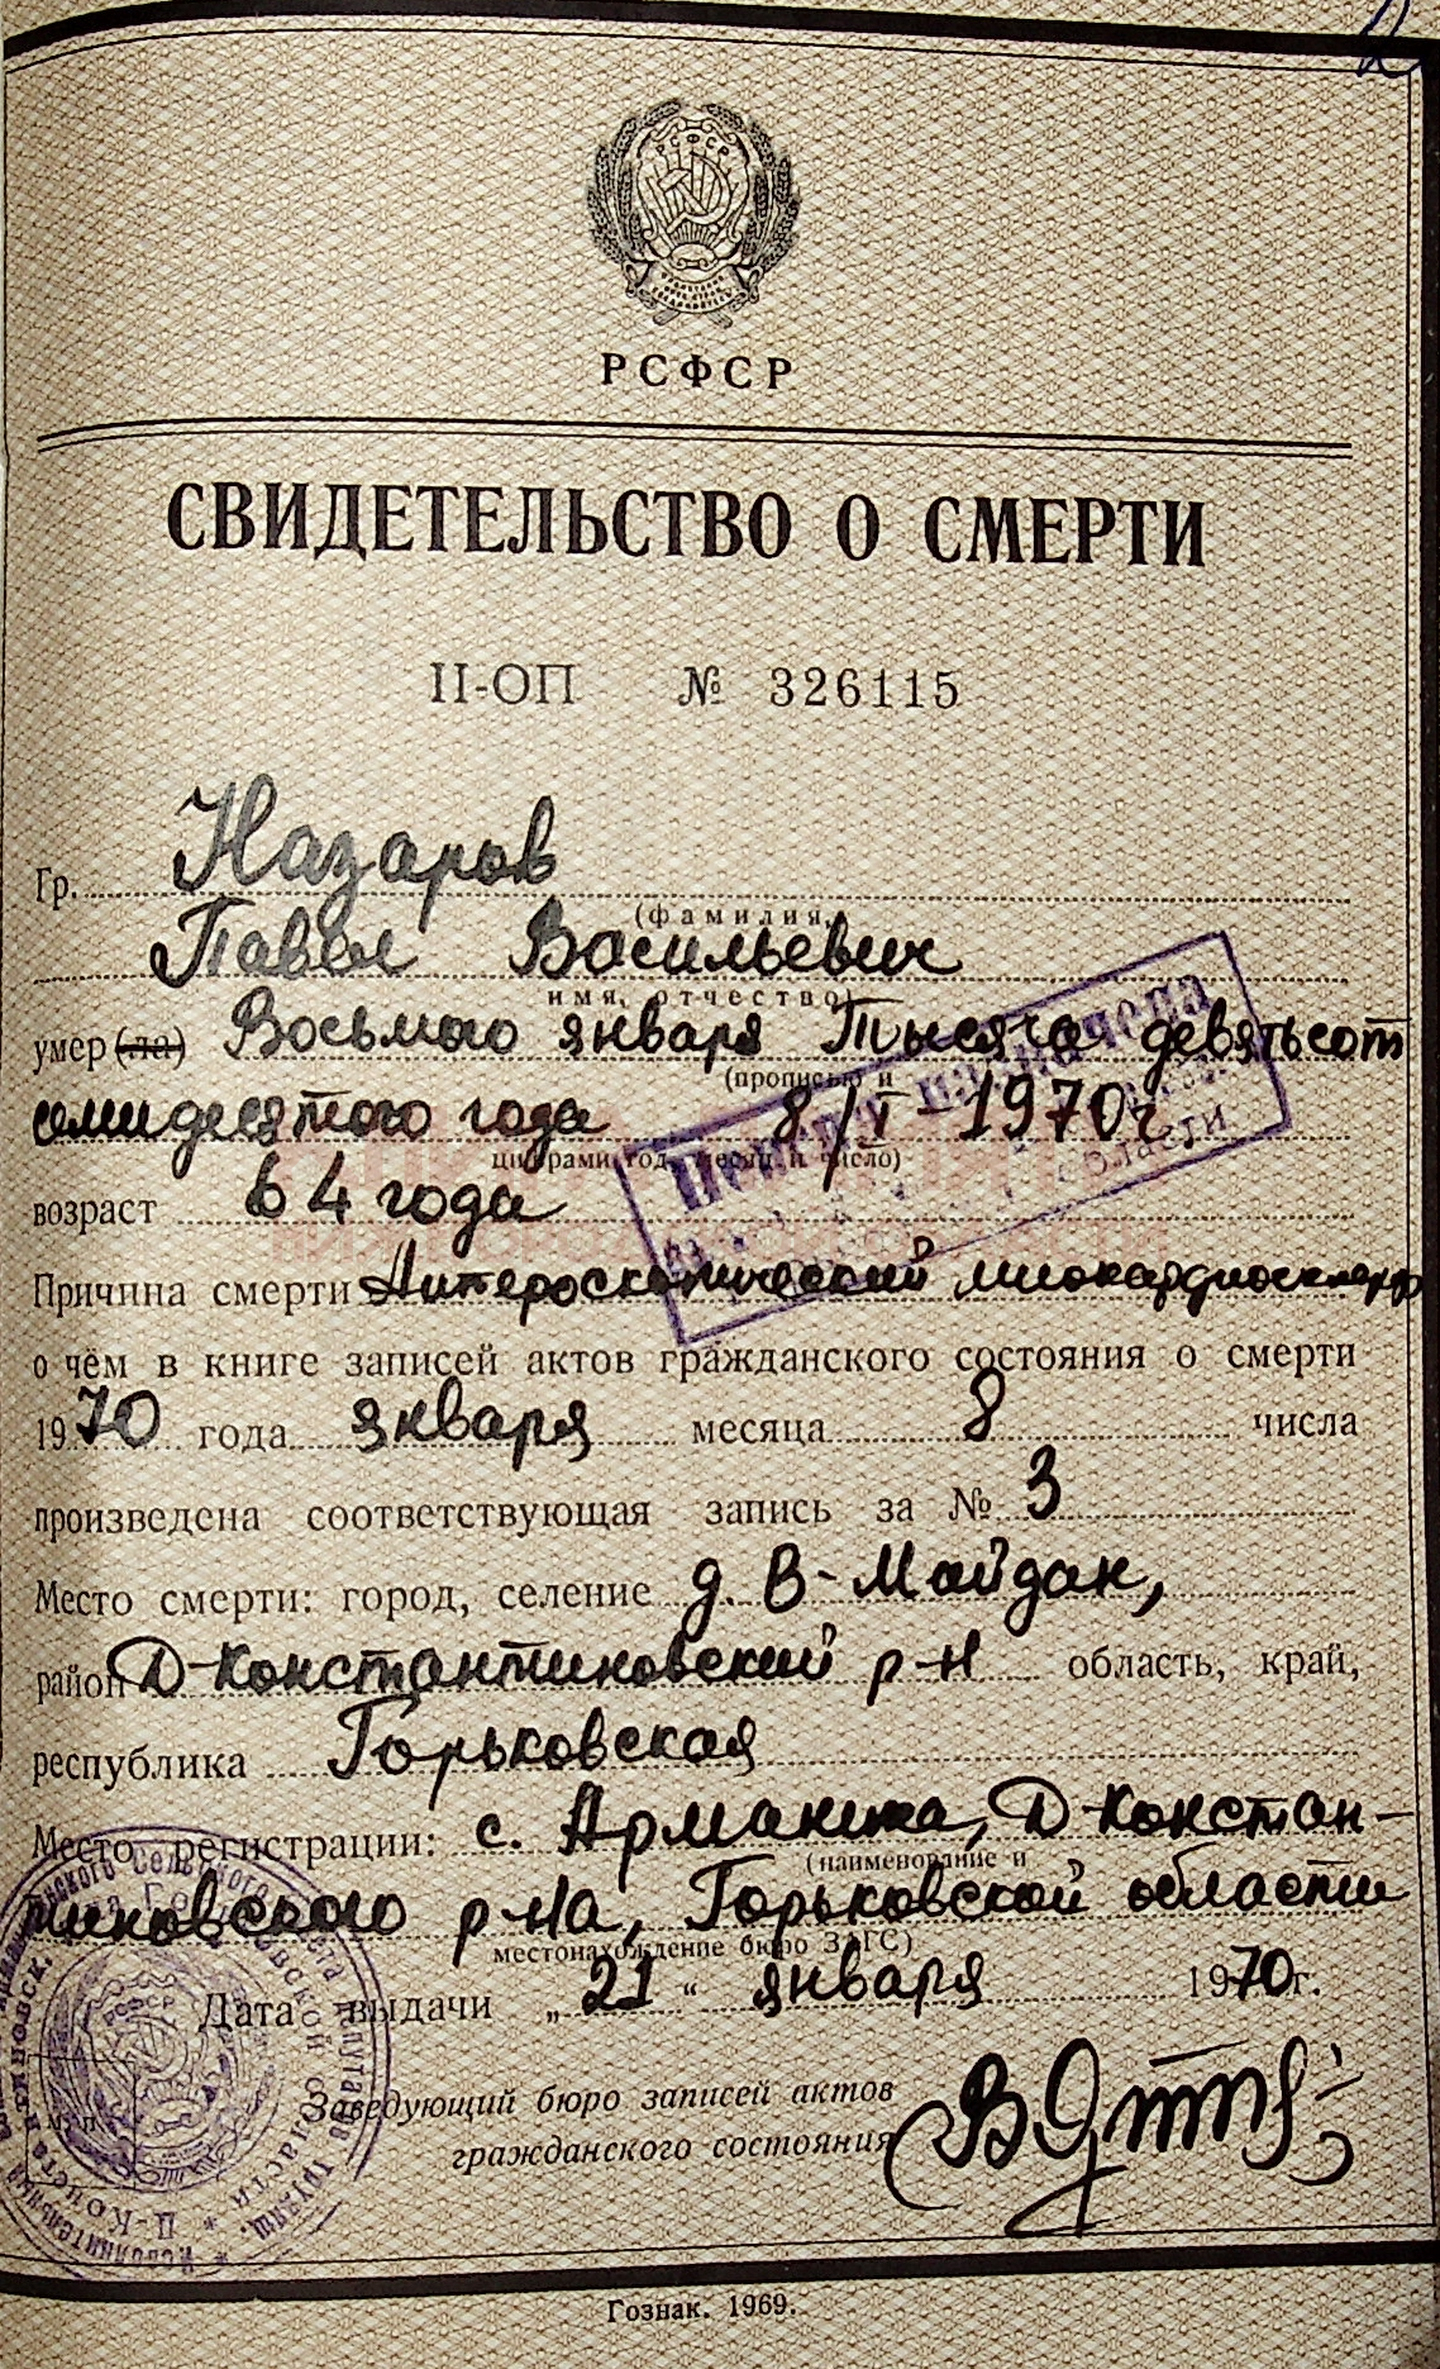 РСФСР
РСФСР
СВИДЕТЕЛЬСТВО О СМЕРТИ
II-ОП № 326115
Гр. Назаров
(фамилия,
Павел Васильевич
имя, отчество)
умер (ла) Восьмого января Тысяча девятьсот
(прописью и
семидесятого года 8/I-1970г
цифрами год, месяц и число)
возраст 64 года
Пенсия назначена
области
Причина смерти миокардиосклероз
о чём в книге записей актов гражданского состояния о смерти
1970 года января месяца 8 числа
произведена соответствующая запись за № 3
Место смерти: город, селение д. В-Майдан,
район Д-Константиновский р-н область, край,
республика Горьковская
Место регистрации: с. Арманиха, Д-Констан-
(наименование и
тиновского р-на, Горьковской области
местонахождение бюро ЗАГС)
Дата выдачи „21“ января 1970 г.
Заведующий бюро записей актов
гражданского состояния
М. П.
Гознак. 1969.